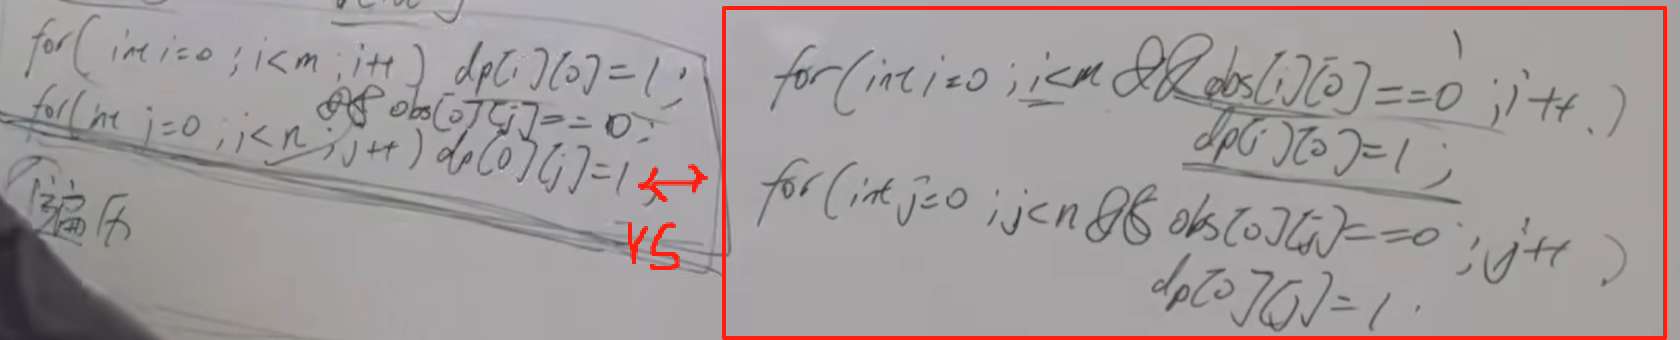 for(int i=0;i<m;i++) dp[i][0]=1;
&& obs[0][j]==0;
for(int j=0;j<n;j++) dp[0][j]=1;
VS
遍历
for(int i=0;i<m && obs[i][0]==0;i++)
dp[i][0]=1;
for(int j=0;j<n && obs[0][j]==0;j++)
dp[0][j]=1.